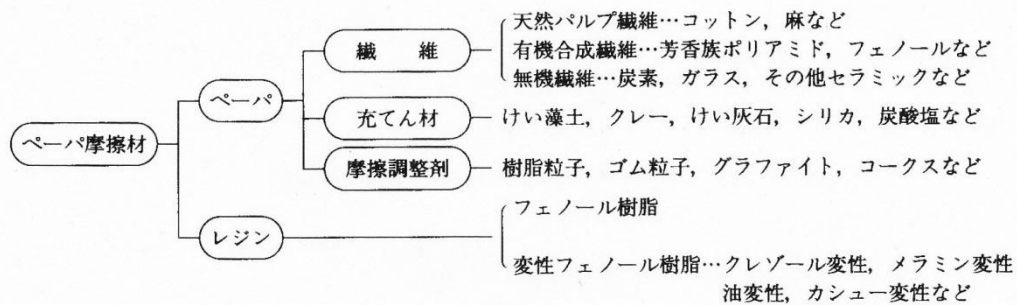 天然パルプ繊維…コットン，麻など
繊　維
有機合成繊維…芳香族ポリアミド，フェノールなど
無機繊維…炭素，ガラス，その他セラミックなど
ペーパ
充てん材
けい藻土，クレー，けい灰石，シリカ，炭酸塩など
ペーパ摩擦材
摩擦調整剤
樹脂粒子，ゴム粒子，グラファイト，コークスなど
フェノール樹脂
レジン
変性フェノール樹脂…クレゾール変性，メラミン変性
油変性，カシュー変性など